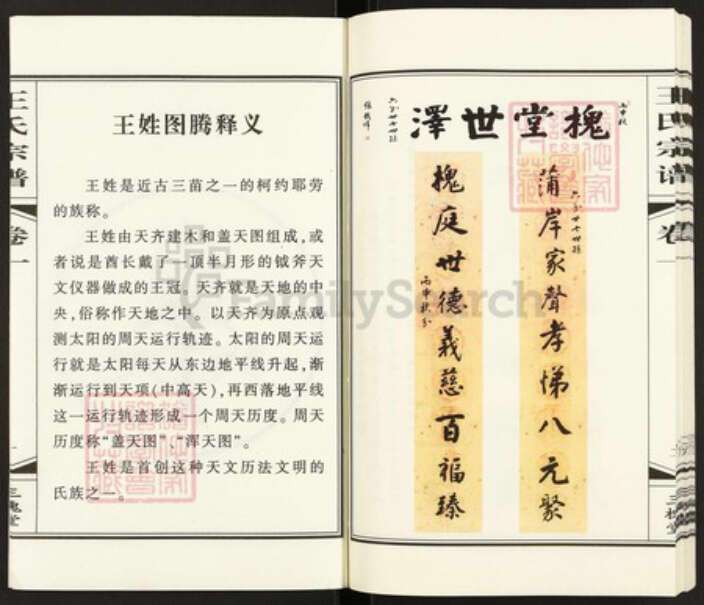 王氏宗谱
卷一
三槐堂
王姓图腾释义
王姓是近古三苗之一的柯约耶劳
的族称。
王姓由天齐建木和盖天图组成,或
者说是酋长戴了一顶半月形的钺斧天
文仪器做成的王冠。天齐就是天地的中
央,俗称作天地之中。以天齐为原点观
测太阳的周天运行轨迹。太阳的周天运
行就是太阳每天从东边地平线升起,渐
渐运行到天项(中高天),再西落地平线
这一运行轨迹形成一个周天历度。周天
历度称“盖天图”、“浑天图”。
王姓是首创这种天文历法文明的
氏族之一。
FamilySearch
槐堂世澤
丙申秋
六房廿七世孫
蒲岸家聲孝悌八元聚
六房廿七世孫
槐庭世德義慈百福臻
王氏宗谱
卷一
三槐堂